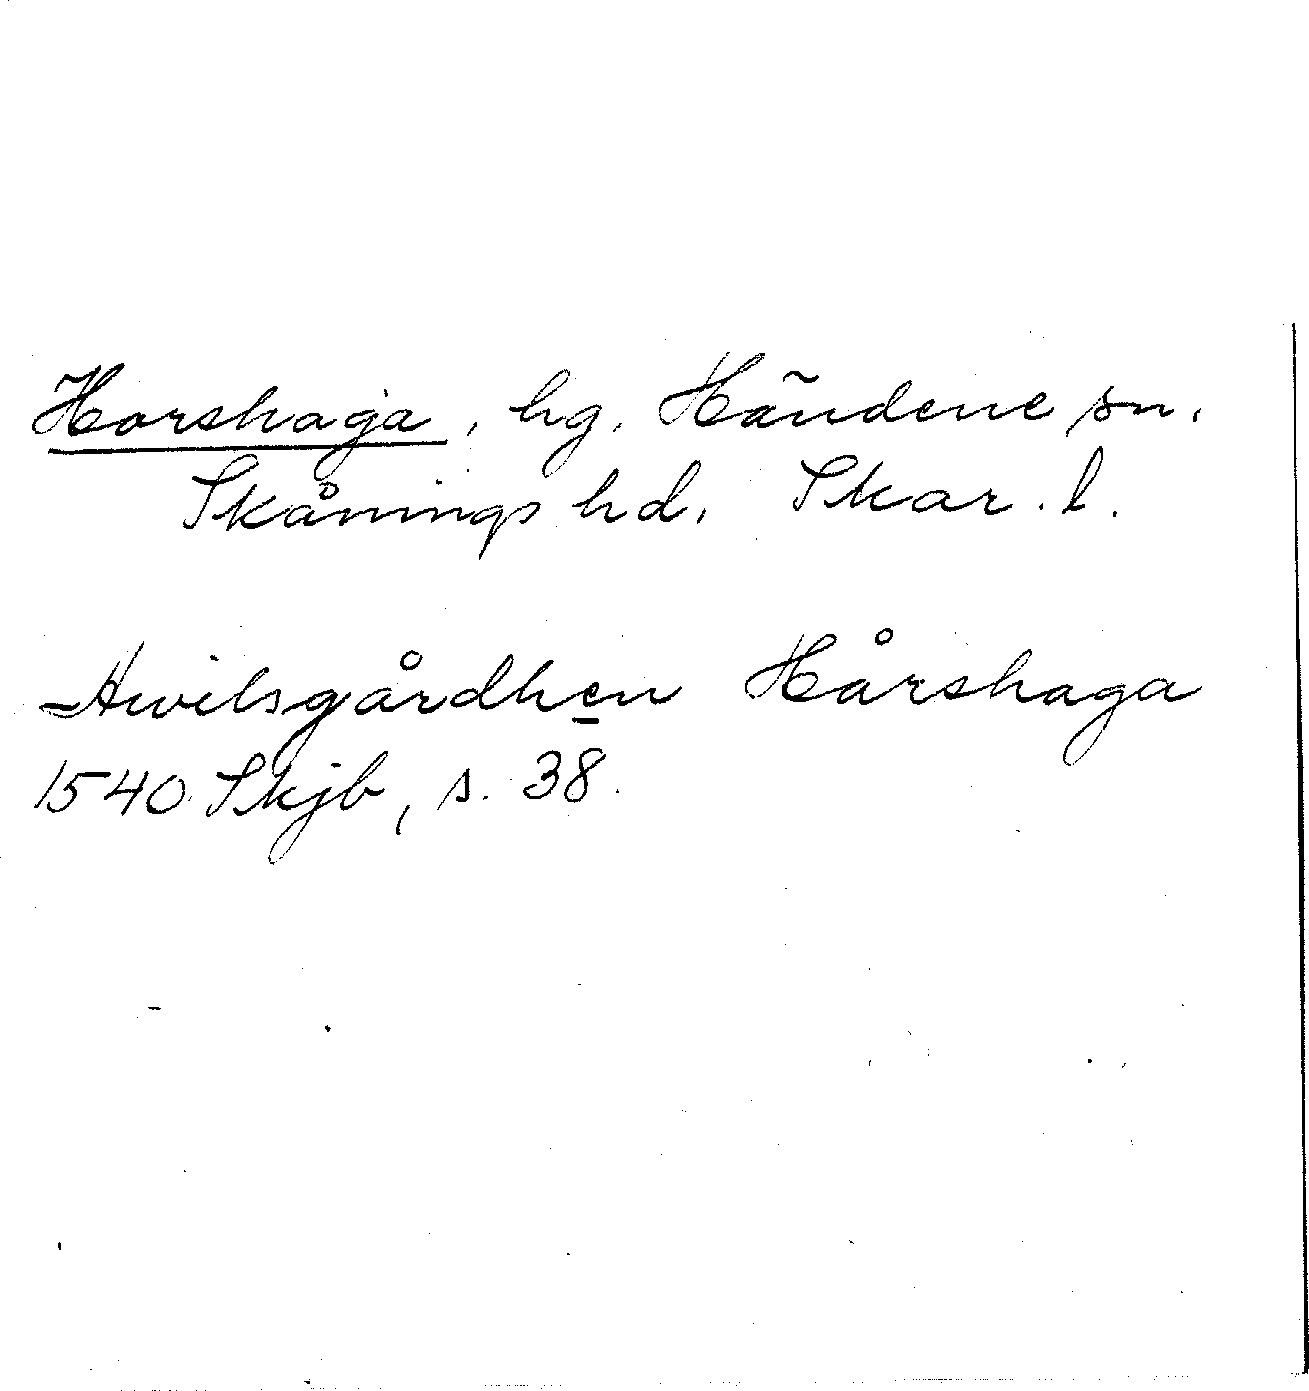 Horshaga, hg, Händene sn.
Skånings hd, Skar. l.
Awilsgårdhen Hårshaga
1540 Skjb, s. 38.